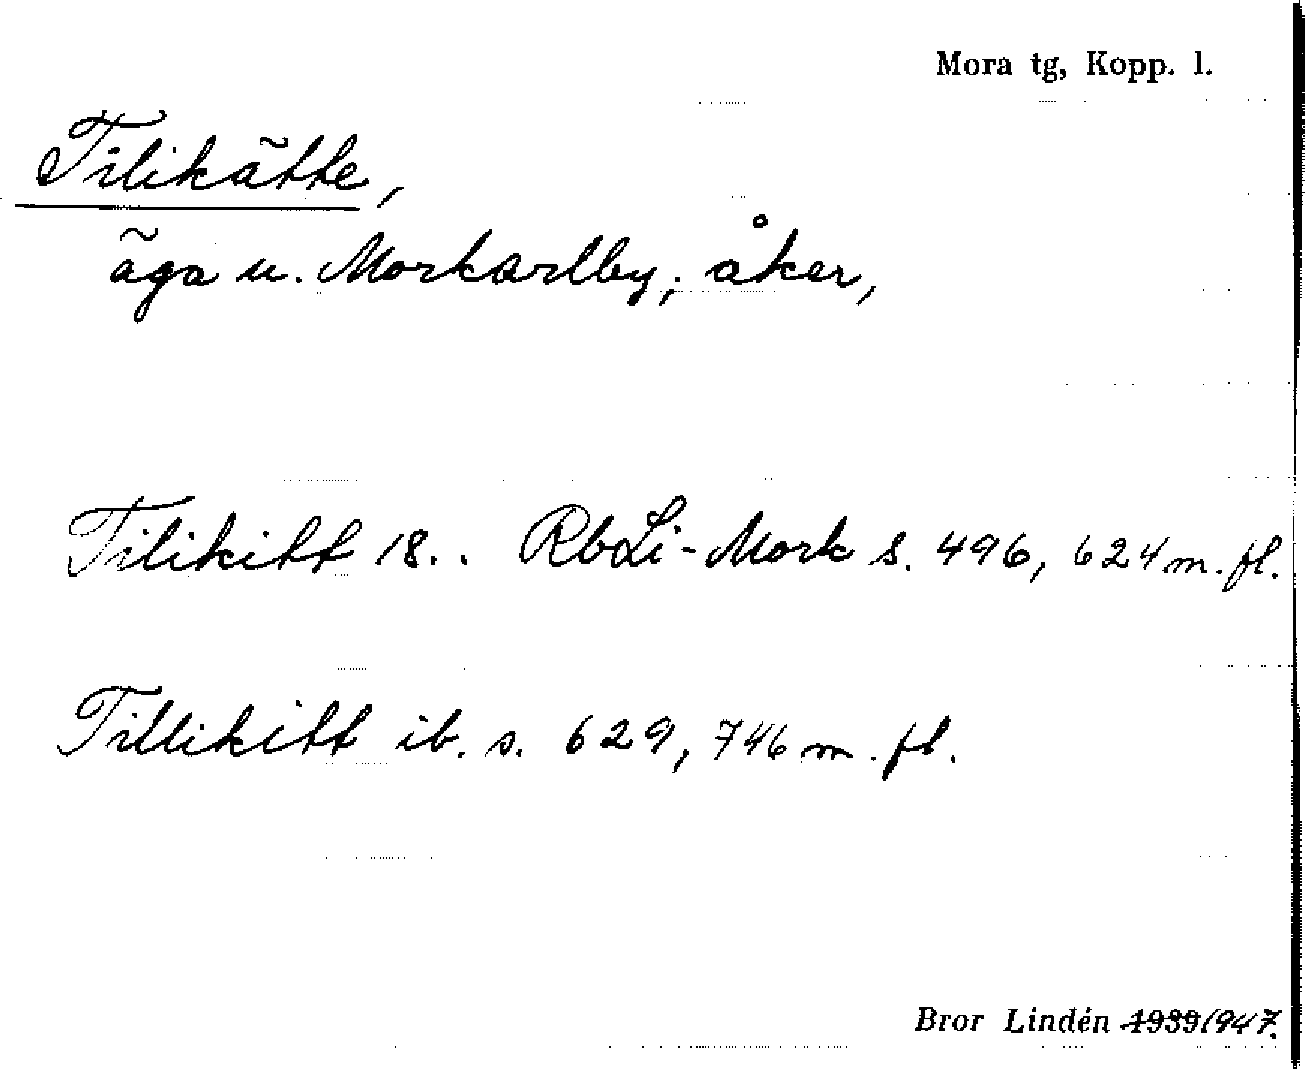 Mora tg, Kopp. l.
Tilikätte,
äga u. Morkarlby; åker,
Tilikitt 18.. RbLi-Mork s. 496, 624 m. fl.
Tillikitt ib. s. 629, 746 m. fl.
Bror Lindén 1939 1947.